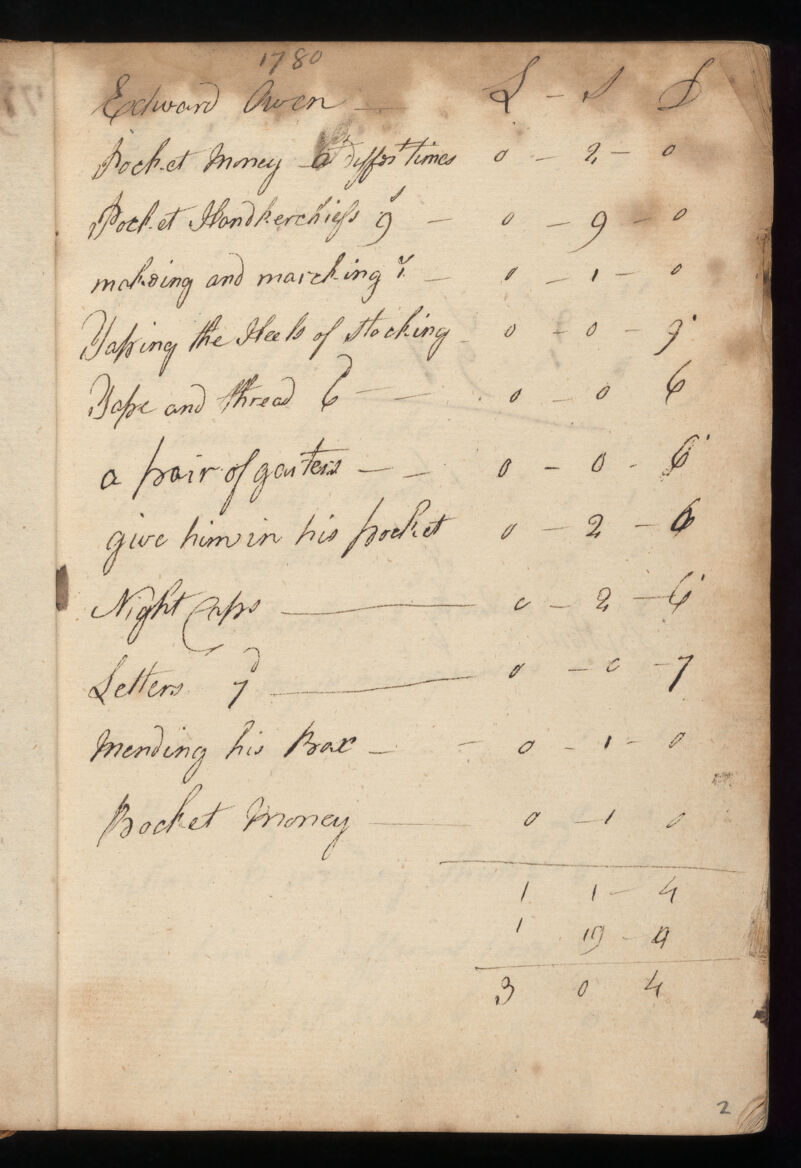 1780
Edward Owen — L - S D
Pocket Money a differt times 0 - 2 - 0
Pocket Handkerchiefs 9s - 0 - 9 - 0
makeing and marcking - 0 - 1 - 0
Taping the Heels of stocking 0 - 0 - 9
Tape and thread 6d - - 0 - 0 6
a pair of garters - - 0 - 0 - 6
give him in his pocket 0 - 2 - 6
Night Caps — 0 - 2 - 6
Letters 7d — 0 - 0 - 7
Mending his Box - - 0 - 1 - 0
Pocket Money — 0 - 1 0
1 1 - 4
1 19 -
3 0 4
2